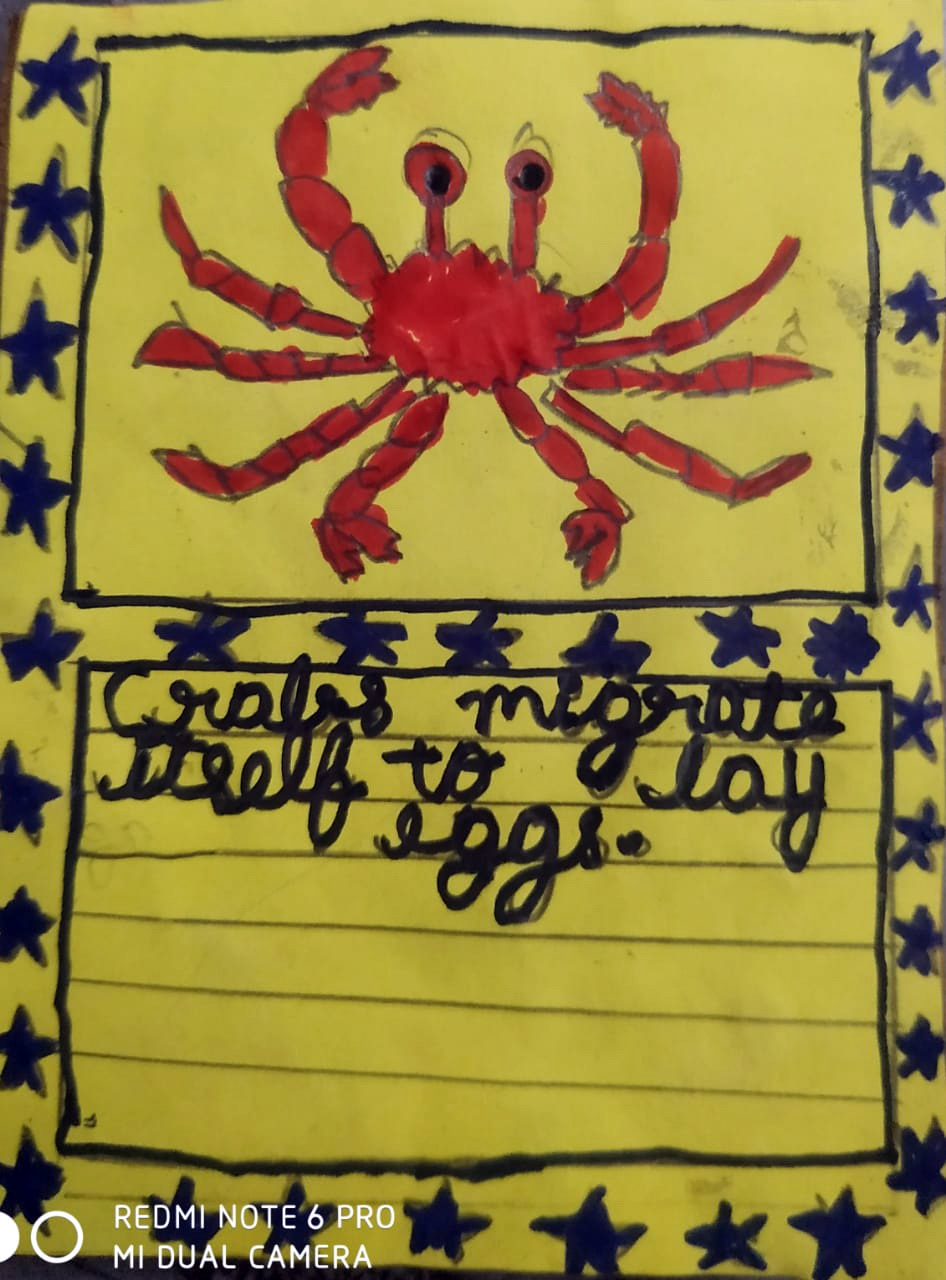 Crabs migrate
itself to lay
eggs.
REDMI NOTE 6 PRO
MI DUAL CAMERA